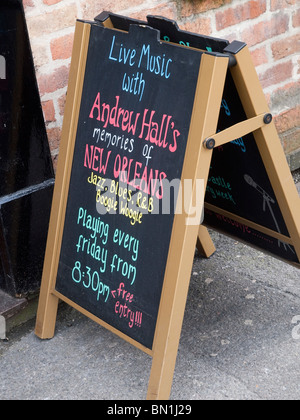 Live Music
with
Andrew Hall's
memories of
NEW ORLEANS
Jazz, Blues, R&B
Boogie Woogie
Playing every
friday from
8:30pm
free
entry!!!
alamy
www.alamy.com
BN1J29